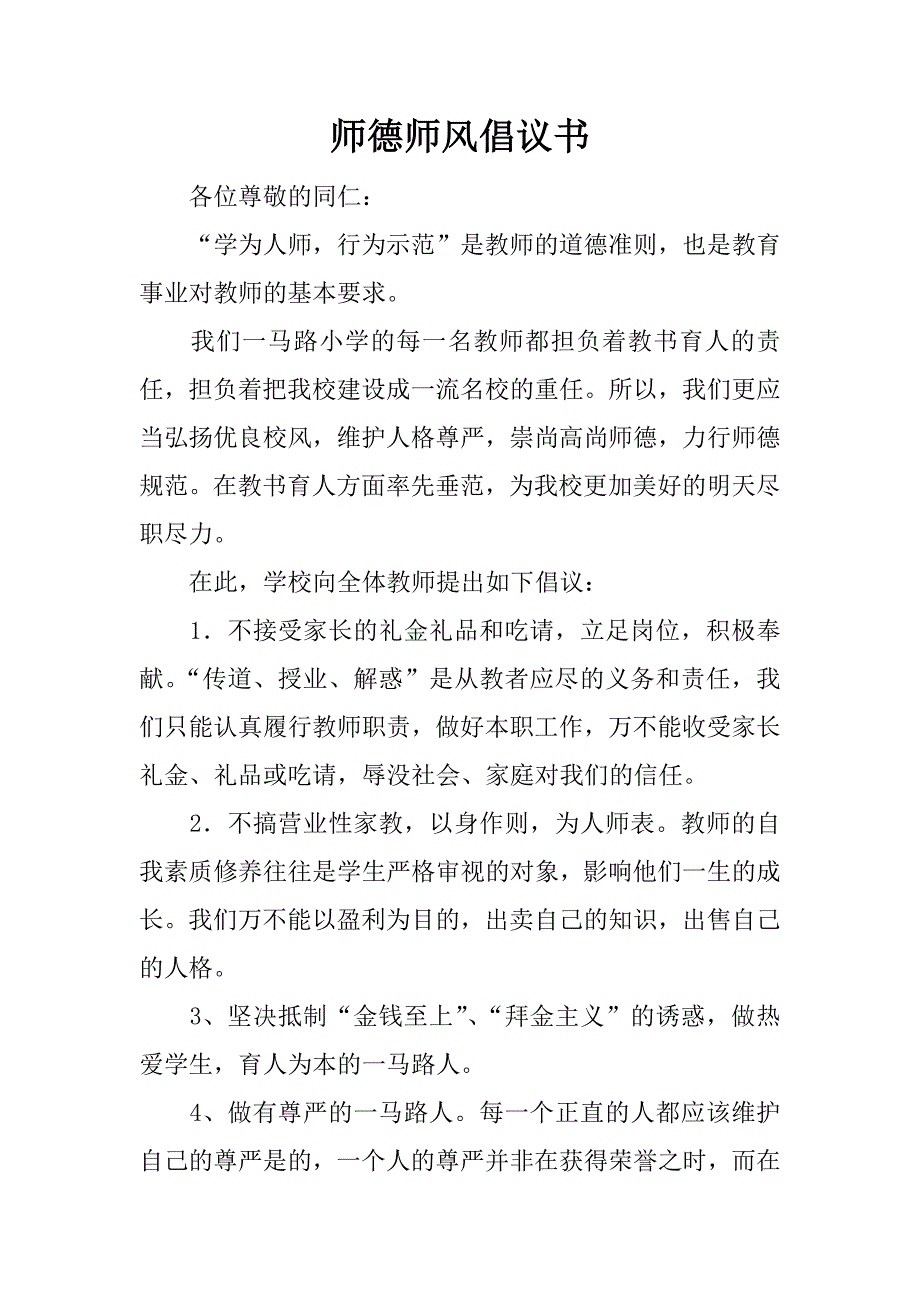 师德师风倡议书
各位尊敬的同仁：
“学为人师，行为示范”是教师的道德准则，也是教育
事业对教师的基本要求。
我们一马路小学的每一名教师都担负着教书育人的责
任，担负着把我校建设成一流名校的重任。所以，我们更应
当弘扬优良校风，维护人格尊严，崇尚高尚师德，力行师德
规范。在教书育人方面率先垂范，为我校更加美好的明天尽
职尽力。
在此，学校向全体教师提出如下倡议：
1．不接受家长的礼金礼品和吃请，立足岗位，积极奉
献。“传道、授业、解惑”是从教者应尽的义务和责任，我
们只能认真履行教师职责，做好本职工作，万不能收受家长
礼金、礼品或吃请，辱没社会、家庭对我们的信任。
2．不搞营业性家教，以身作则，为人师表。教师的自
我素质修养往往是学生严格审视的对象，影响他们一生的成
长。我们万不能以盈利为目的，出卖自己的知识，出售自己
的人格。
3、坚决抵制“金钱至上”、“拜金主义”的诱惑，做热
爱学生，育人为本的一马路人。
4、做有尊严的一马路人。每一个正直的人都应该维护
自己的尊严是的，一个人的尊严并非在获得荣誉之时，而在